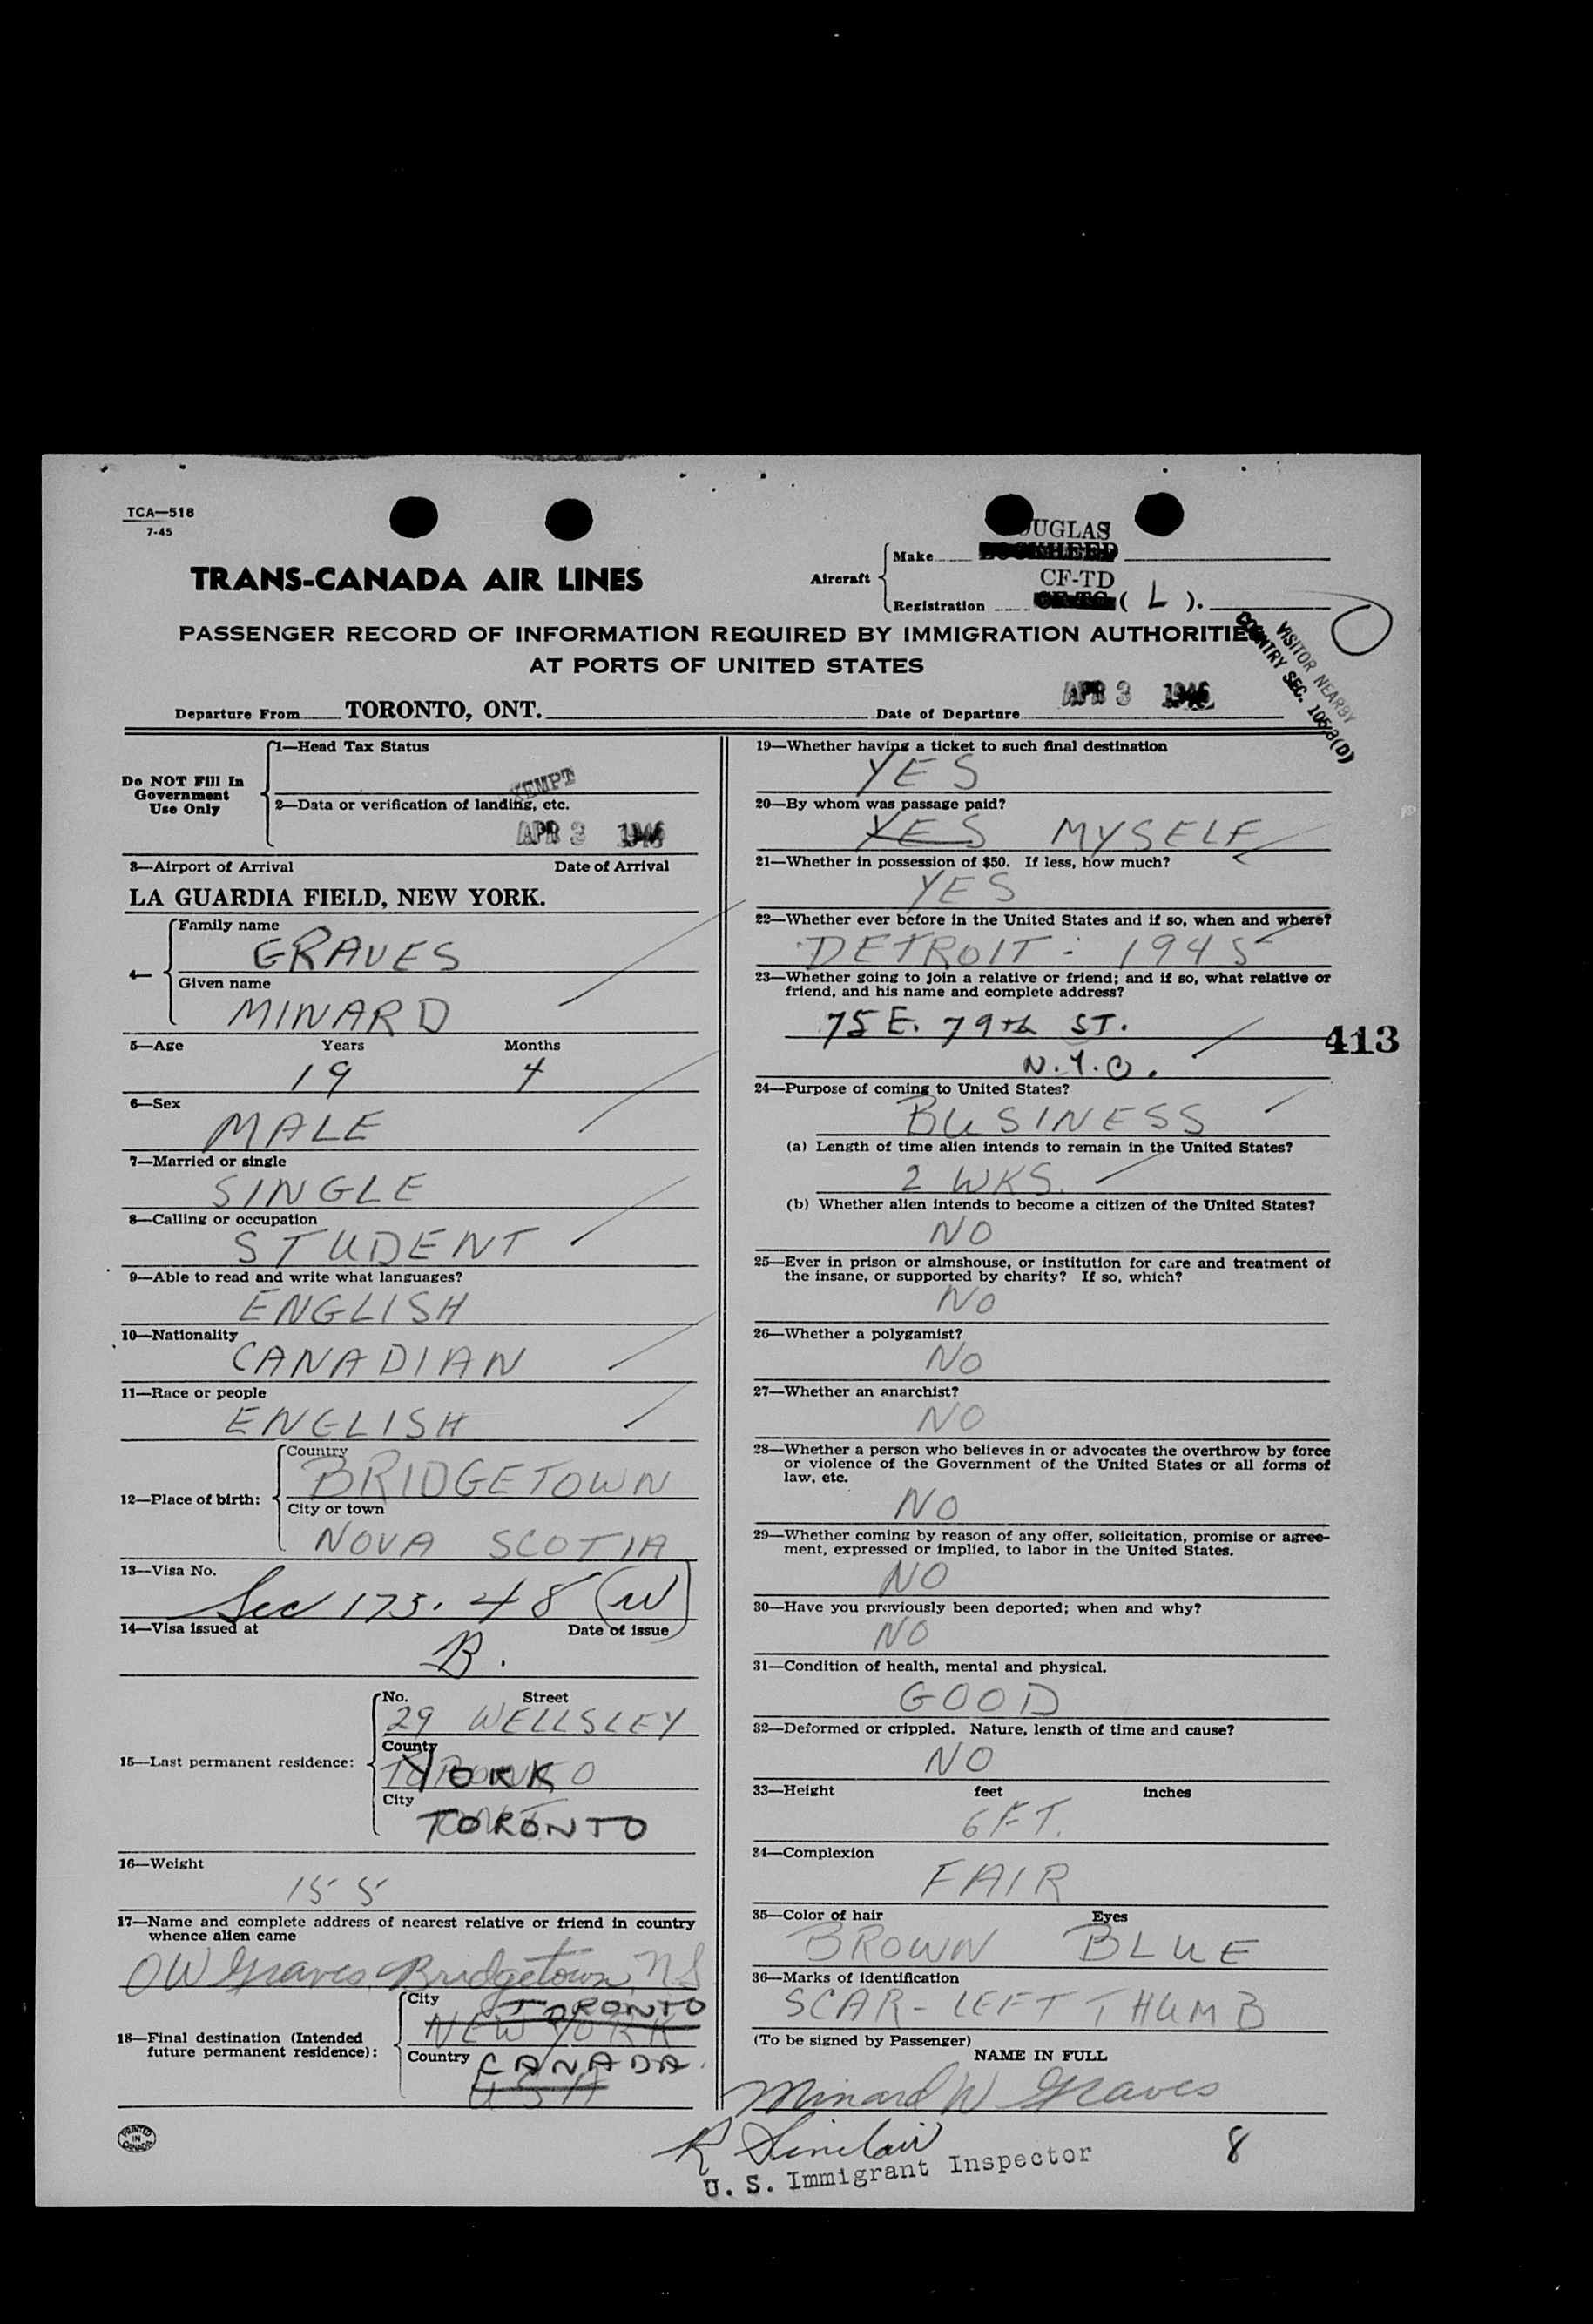 TCA—518
7-45
TRANS-CANADA AIR LINES
Aircraft
Make
UGLAS
LOCKHEED
CF-TD
Registration
( L ).
PASSENGER RECORD OF INFORMATION REQUIRED BY IMMIGRATION AUTHORITIE
AT PORTS OF UNITED STATES
VISITOR NEARBY
COUNTRY SEC. 105.3(D)
Departure From TORONTO, ONT.
Date of Departure APR 3 1946
Do NOT Fill In
Government
Use Only
1—Head Tax Status
EXEMPT
2—Data or verification of landing, etc.
APR 3 1946
3—Airport of Arrival Date of Arrival
LA GUARDIA FIELD, NEW YORK.
4—
Family name
GRAVES
Given name
MINARD
5—Age Years Months
19 4
6—Sex
MALE
7—Married or single
SINGLE
8—Calling or occupation
STUDENT
9—Able to read and write what languages?
ENGLISH
10—Nationality
CANADIAN
11—Race or people
ENGLISH
12—Place of birth:
Country
BRIDGETOWN
City or town
NOVA SCOTIA
13—Visa No.
Sec 175.48 (W)
14—Visa issued at Date of issue
B.
15—Last permanent residence:
No. Street
29 WELLSLEY
County
YORK
City
TORONTO
16—Weight
155
17—Name and complete address of nearest relative or friend in country
whence alien came
OW Graves, Bridgetown, NS
18—Final destination (Intended
future permanent residence):
City
TORONTO
NEW YORK
Country
CANADA.
USA
PRINTED
IN
CANADA
19—Whether having a ticket to such final destination
YES
20—By whom was passage paid?
YES MYSELF
21—Whether in possession of $50. If less, how much?
YES
22—Whether ever before in the United States and if so, when and where?
DETROIT - 1945
23—Whether going to join a relative or friend; and if so, what relative or
friend, and his name and complete address?
75 E. 79th ST.
N.Y.C.
413
24—Purpose of coming to United States?
BUSINESS
(a) Length of time alien intends to remain in the United States?
2 WKS.
(b) Whether alien intends to become a citizen of the United States?
NO
25—Ever in prison or almshouse, or institution for care and treatment of
the insane, or supported by charity? If so, which?
NO
26—Whether a polygamist?
NO
27—Whether an anarchist?
NO
28—Whether a person who believes in or advocates the overthrow by force
or violence of the Government of the United States or all forms of
law, etc.
NO
29—Whether coming by reason of any offer, solicitation, promise or agree-
ment, expressed or implied, to labor in the United States.
NO
30—Have you previously been deported; when and why?
NO
31—Condition of health, mental and physical.
GOOD
32—Deformed or crippled. Nature, length of time and cause?
NO
33—Height feet inches
6 FT.
34—Complexion
FAIR
35—Color of hair Eyes
BROWN BLUE
36—Marks of identification
SCAR - LEFT THUMB
(To be signed by Passenger)
NAME IN FULL
Minard W Graves
R Sinclair
U. S. Immigrant Inspector
8